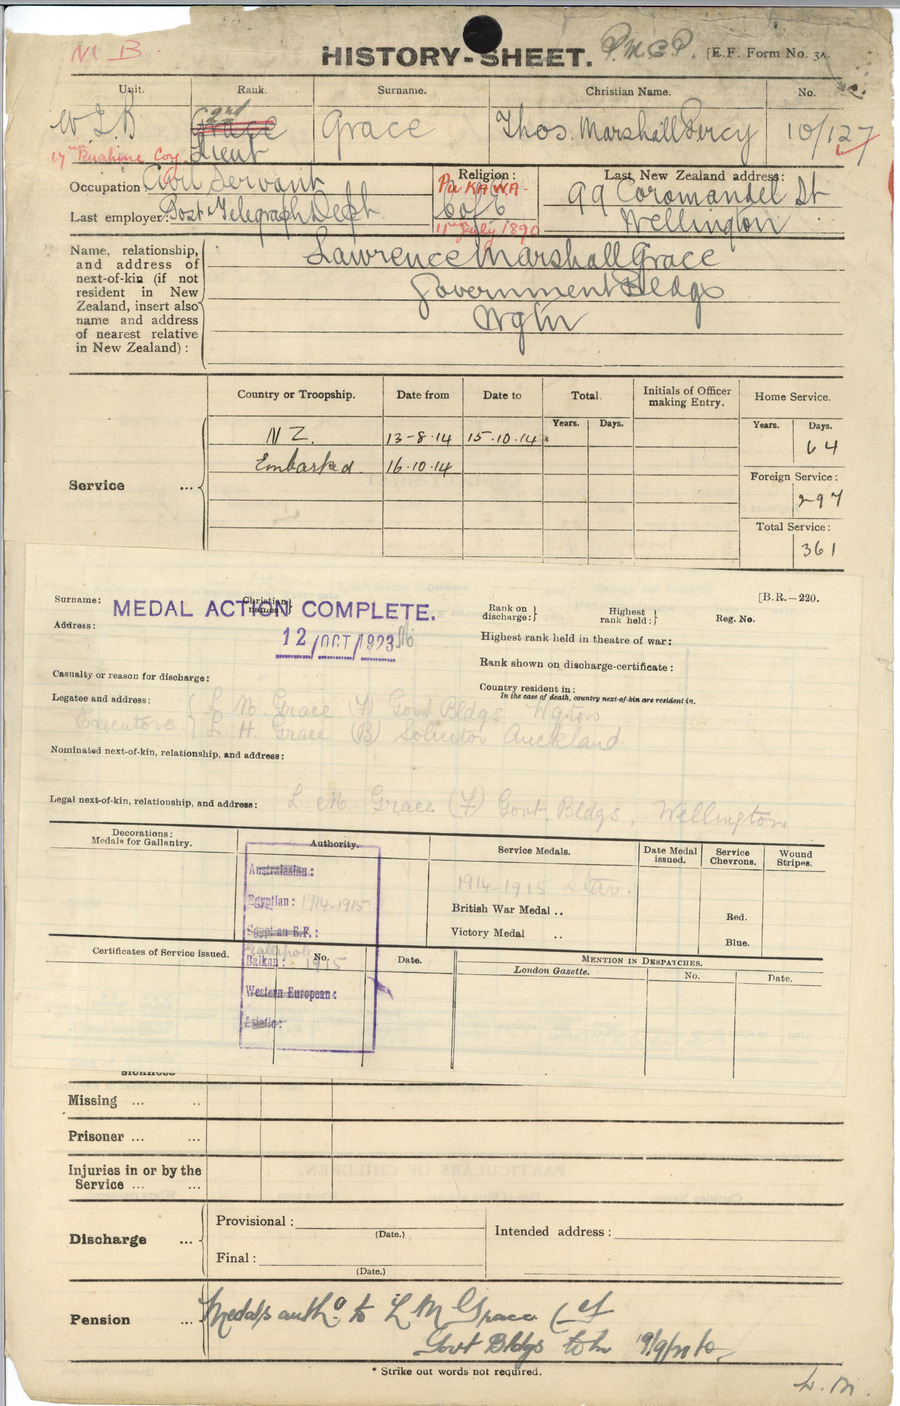 M B.
HISTORY-SHEET.
P.M.C.P.
[E.F. Form No. 3A.
Unit.
Rank.
Surname.
Christian Name.
No.
W I B
Grace
2nd
Lieut
Grace
Thos. Marshall Percy
10/127
17th Ruahine Coy.
Occupation Civil Servant
Last employer: Post & Telegraph Dept
Religion:
PUKAWA
C of E
11th July 1890
Last New Zealand address:
99 Coromandel St
Wellington
Name, relationship,
and address of
next-of-kin (if not
resident in New
Zealand, insert also
name and address
of nearest relative
in New Zealand):
Lawrence Marshall Grace
Government Bldgs
Wgtn
Service ...
Country or Troopship.
Date from
Date to
Total.
Initials of Officer
making Entry.
Home Service.
Years. Days.
Years. Days.
N Z. 13-8-14 15.10.14
64
Embarked. 16.10.14
Foreign Service:
297
Total Service:
361
Surname:
Christian
names:
MEDAL ACTION COMPLETE.
12/OCT/1923
Address:
Rank on
discharge:
Highest
rank held:
[B.R.—220.
Reg. No.
Highest rank held in theatre of war:
Rank shown on discharge-certificate:
Country resident in:
In the case of death, country next-of-kin are resident in.
Casualty or reason for discharge:
Legatee and address: L M Grace (F) Govt Bldgs Wgton
Executors L H. Grace (B) Solicitor Auckland
Nominated next-of-kin, relationship, and address:
Legal next-of-kin, relationship, and address: L. M. Grace (F) Govt. Bldgs, Wellington
Decorations:
Medals for Gallantry.
Authority.
Service Medals.
Date Medal
issued.
Service
Chevrons.
Wound
Stripes.
Australasian:
Egyptian: 1914-1915
Egyptian E.F.:
Gallipoli
Balkan: 1915
Western European:
Asiatic:
1914-1915 Star.
British War Medal ..
Victory Medal ..
Red.
Blue.
Certificates of Service issued.
No.
Date.
MENTION IN DESPATCHES.
London Gazette.
No.
Date.
SICKNESS
Missing ... ..
Prisoner ... ...
Injuries in or by the
Service ... ...
Discharge ...
Provisional:
(Date.)
Final:
(Date.)
Intended address:
Pension ...
Medals auth. to L M Grace (F)
Govt Bldgs
* Strike out words not required.
L. M.